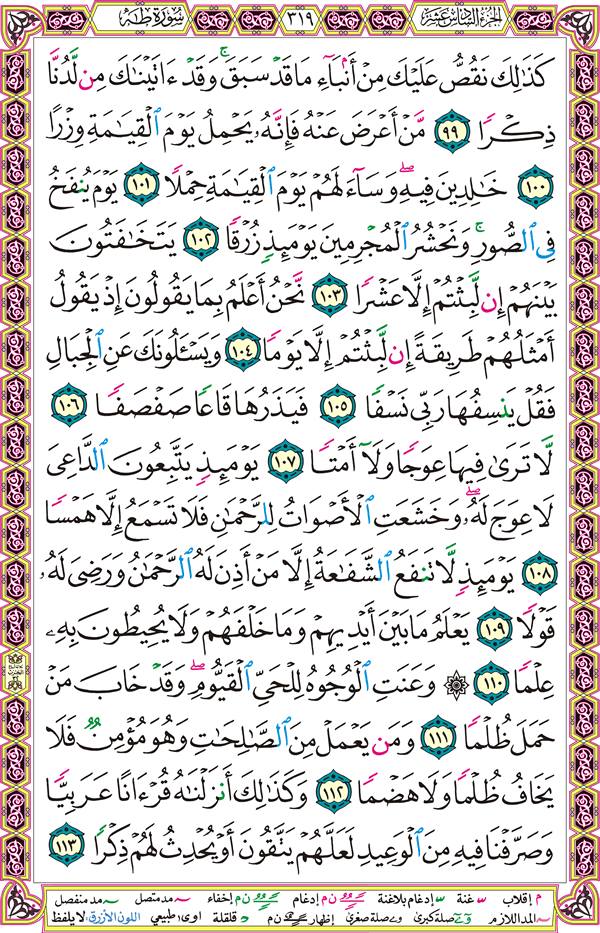 الجزء السادس عشر ٣١٩ سورة طه
كَذَٰلِكَ نَقُصُّ عَلَيْكَ مِنْ أَنۢبَآءِ مَا قَدْ سَبَقَ ۚ وَقَدْ ءَاتَيْنَـٰكَ مِن لَّدُنَّا
ذِكْرًا ٩٩ مَّنْ أَعْرَضَ عَنْهُ فَإِنَّهُۥ يَحْمِلُ يَوْمَ ٱلْقِيَـٰمَةِ وِزْرًا
١٠٠ خَـٰلِدِينَ فِيهِ ۖ وَسَآءَ لَهُمْ يَوْمَ ٱلْقِيَـٰمَةِ حِمْلًا ١٠١ يَوْمَ يُنفَخُ
فِى ٱلصُّورِ ۚ وَنَحْشُرُ ٱلْمُجْرِمِينَ يَوْمَئِذٍ زُرْقًا ١٠٢ يَتَخَـٰفَتُونَ
بَيْنَهُمْ إِن لَّبِثْتُمْ إِلَّا عَشْرًا ١٠٣ نَّحْنُ أَعْلَمُ بِمَا يَقُولُونَ إِذْ يَقُولُ
أَمْثَلُهُمْ طَرِيقَةً إِن لَّبِثْتُمْ إِلَّا يَوْمًا ١٠٤ وَيَسْـَٔلُونَكَ عَنِ ٱلْجِبَالِ
فَقُلْ يَنسِفُهَا رَبِّى نَسْفًا ١٠٥ فَيَذَرُهَا قَاعًا صَفْصَفًا ١٠٦
لَّا تَرَىٰ فِيهَا عِوَجًا وَلَآ أَمْتًا ١٠٧ يَوْمَئِذٍ يَتَّبِعُونَ ٱلدَّاعِىَ
لَا عِوَجَ لَهُۥ ۖ وَخَشَعَتِ ٱلْأَصْوَاتُ لِلرَّحْمَـٰنِ فَلَا تَسْمَعُ إِلَّا هَمْسًا
١٠٨ يَوْمَئِذٍ لَّا تَنفَعُ ٱلشَّفَـٰعَةُ إِلَّا مَنْ أَذِنَ لَهُ ٱلرَّحْمَـٰنُ وَرَضِىَ لَهُۥ
قَوْلًا ١٠٩ يَعْلَمُ مَا بَيْنَ أَيْدِيهِمْ وَمَا خَلْفَهُمْ وَلَا يُحِيطُونَ بِهِۦ
عِلْمًا ١١٠ ۞ وَعَنَتِ ٱلْوُجُوهُ لِلْحَىِّ ٱلْقَيُّومِ ۖ وَقَدْ خَابَ مَنْ
حَمَلَ ظُلْمًا ١١١ وَمَن يَعْمَلْ مِنَ ٱلصَّـٰلِحَـٰتِ وَهُوَ مُؤْمِنٌ فَلَا
يَخَافُ ظُلْمًا وَلَا هَضْمًا ١١٢ وَكَذَٰلِكَ أَنزَلْنَـٰهُ قُرْءَانًا عَرَبِيًّا
وَصَرَّفْنَا فِيهِ مِنَ ٱلْوَعِيدِ لَعَلَّهُمْ يَتَّقُونَ أَوْ يُحْدِثُ لَهُمْ ذِكْرًا ١١٣
م إقلاب غنة إدغام بلاغنة ن م إدغام ن م إخفاء مد متصل مد منفصل
المد اللازم صلة كبرى صلة صغرى إظهار ن م قلقلة ا و ى طبيعي اللون الأزرق: لا يلفظ